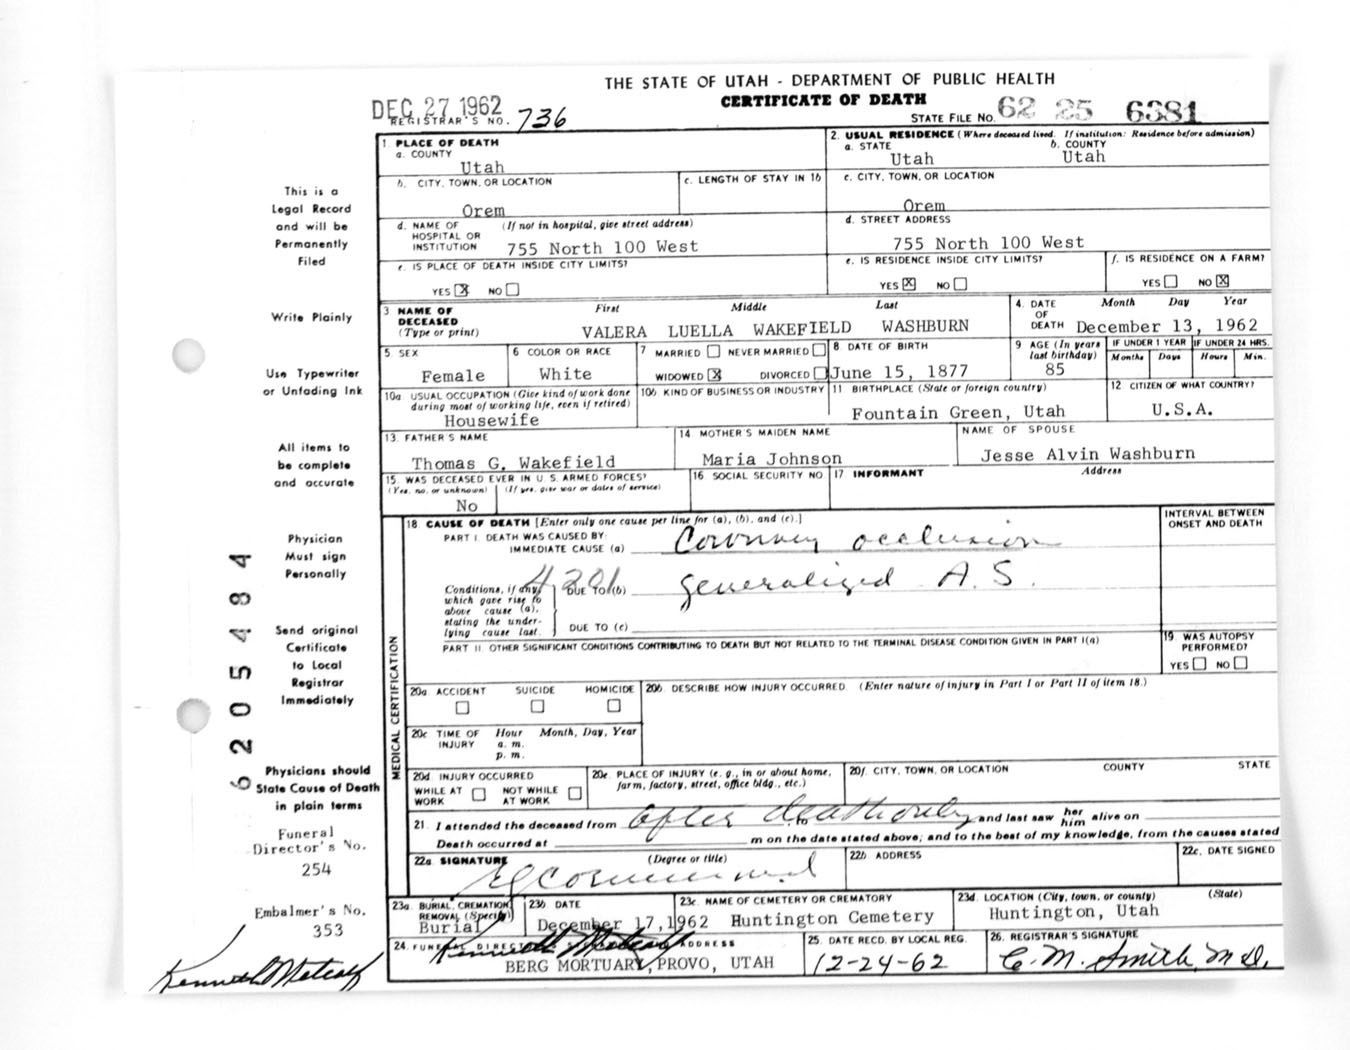 THE STATE OF UTAH - DEPARTMENT OF PUBLIC HEALTH
CERTIFICATE OF DEATH
DEC 27 1962
REGISTRAR'S NO. 736
STATE FILE NO. 62 25 6381
1. PLACE OF DEATH
a. COUNTY
Utah
2. USUAL RESIDENCE (Where deceased lived. If institution: Residence before admission)
a. STATE
Utah
b. COUNTY
Utah
b. CITY, TOWN, OR LOCATION
Orem
c. LENGTH OF STAY IN 1b
c. CITY, TOWN, OR LOCATION
Orem
d. NAME OF HOSPITAL OR INSTITUTION
(If not in hospital, give street address)
755 North 100 West
d. STREET ADDRESS
755 North 100 West
e. IS PLACE OF DEATH INSIDE CITY LIMITS?
YES X NO
e. IS RESIDENCE INSIDE CITY LIMITS?
YES X NO
f. IS RESIDENCE ON A FARM?
YES NO X
3 NAME OF DECEASED (Type or print)
First Middle Last
VALERA LUELLA WAKEFIELD WASHBURN
4. DATE OF DEATH
Month Day Year
December 13, 1962
5. SEX
Female
6 COLOR OR RACE
White
7 MARRIED NEVER MARRIED
WIDOWED X DIVORCED
8 DATE OF BIRTH
June 15, 1877
9 AGE (In years last birthday)
85
IF UNDER 1 YEAR
Months Days
IF UNDER 24 HRS.
Hours Min.
10a. USUAL OCCUPATION (Give kind of work done during most of working life, even if retired)
Housewife
10b KIND OF BUSINESS OR INDUSTRY
11 BIRTHPLACE (State or foreign country)
Fountain Green, Utah
12 CITIZEN OF WHAT COUNTRY?
U.S.A.
13. FATHER'S NAME
Thomas G. Wakefield
14 MOTHER'S MAIDEN NAME
Maria Johnson
NAME OF SPOUSE
Jesse Alvin Washburn
15. WAS DECEASED EVER IN U.S. ARMED FORCES?
(Yes, no, or unknown) (If yes, give war or dates of service)
No
16 SOCIAL SECURITY NO
17 INFORMANT Address
18 CAUSE OF DEATH [Enter only one cause per line for (a), (b), and (c).]
INTERVAL BETWEEN ONSET AND DEATH
PART I. DEATH WAS CAUSED BY:
IMMEDIATE CAUSE (a) Coronary occlusion
Conditions, if any, which gave rise to above cause (a), stating the underlying cause last.
4201
DUE TO (b) generalized A.S.
DUE TO (c)
PART II. OTHER SIGNIFICANT CONDITIONS CONTRIBUTING TO DEATH BUT NOT RELATED TO THE TERMINAL DISEASE CONDITION GIVEN IN PART I(a)
19. WAS AUTOPSY PERFORMED?
YES NO
MEDICAL CERTIFICATION
20a. ACCIDENT SUICIDE HOMICIDE
20b. DESCRIBE HOW INJURY OCCURRED. (Enter nature of injury in Part I or Part II of item 18.)
20c TIME OF INJURY
Hour Month, Day, Year
a. m.
p. m.
20d. INJURY OCCURRED
WHILE AT WORK NOT WHILE AT WORK
20e. PLACE OF INJURY (e. g., in or about home, farm, factory, street, office bldg., etc.)
20f. CITY, TOWN, OR LOCATION COUNTY STATE
21. I attended the deceased from after death only to and last saw her him alive on
Death occurred at m on the date stated above; and to the best of my knowledge, from the causes stated
22a SIGNATURE (Degree or title)
22b. ADDRESS
22c. DATE SIGNED
23a. BURIAL, CREMATION, REMOVAL (Specify)
Burial
23b. DATE
December 17,1962
23c. NAME OF CEMETERY OR CREMATORY
Huntington Cemetery
23d. LOCATION (City, town, or county) (State)
Huntington, Utah
24. FUNERAL DIRECTOR'S SIGNATURE ADDRESS
Kenneth D Metcalf
BERG MORTUARY, PROVO, UTAH
25. DATE RECD. BY LOCAL REG.
12-24-62
26. REGISTRAR'S SIGNATURE
C. M. Smith, M.D.
This is a
Legal Record
and will be
Permanently
Filed
Write Plainly
Use Typewriter
or Unfading Ink
All items to
be complete
and accurate
Physician
Must sign
Personally
Send original
Certificate
to Local
Registrar
Immediately
Physicians should
State Cause of Death
in plain terms
6205484
Funeral
Director's No.
254
Embalmer's No.
353
Kenneth D Metcalf